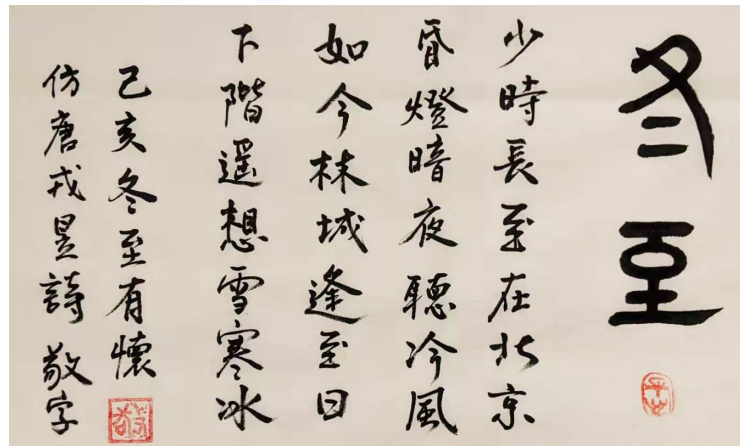 冬至
少時長至在北京
昏燈暗夜聽冷風
如今林城逢至日
下階遥想雪寒冰
己亥冬至有懷
仿唐戎昱詩 敬字